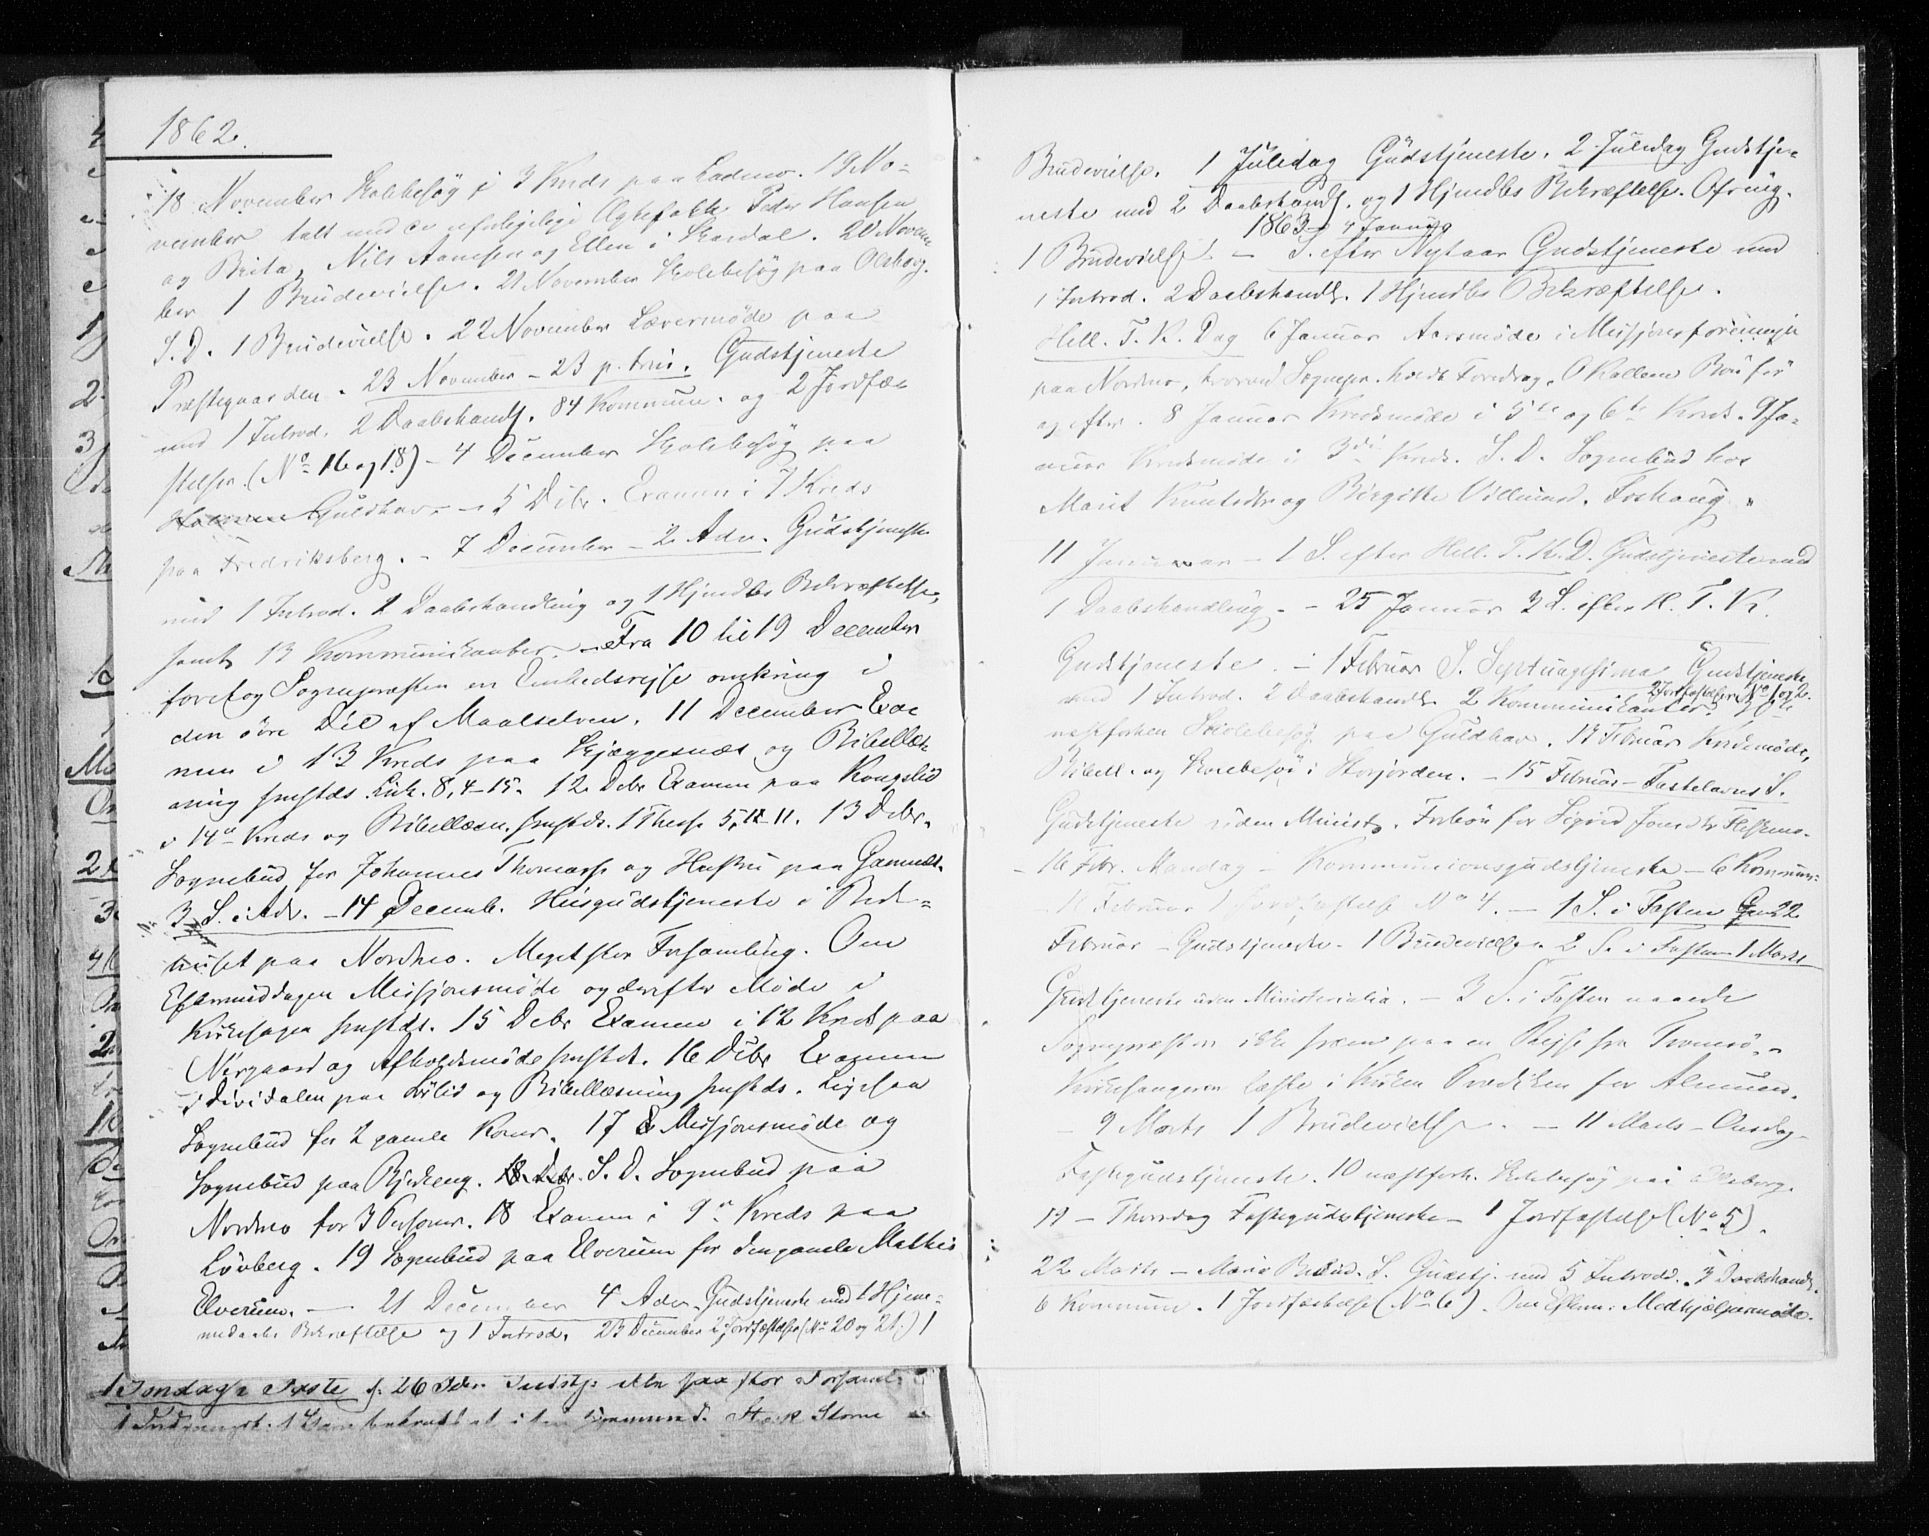 1862.
18 November Skolebesøg i 3 Kreds paa . 19 No-
vember talt med de uforligelige Ægtefolk Peder Hansen
og Berita, Nils Aansen og Ellen i Skardal. 20 Novem
ber 1 Brudevielse. 21 November Skolebesøg paa Olsborg.
S. D. 1 Brudevielse. 22 November Lærermøde paa
Præstegaarden. 23 November – 23 p. trin. Gudstjeneste
med 1 Introd. 2 Daabshandl. 84 Kommun. og 2 Jordfæ-
stelser (No 16 og 18) – 4 December Skolebesøg paa
Guldhav. – 5 Debr. Examen i 7 Kreds
paa Fredriksberg. – 7 December – 2 Adv. Gudstjeneste
med 1 Introd. 1 Daabshandling og 1 Hjmdbs Bekræftelse,
samt 13 Kommunikanter. – Fra 10 til 19 December
foretog Sognepræsten en Embedsrejse omkring i
den øvre Del af Maalselven. 11 December Exa
men i 13 Kreds paa Skjæggesnæs og Bibellæs
ning sammesteds. Luk. 8, 4–15. 12 Debr Examen paa Kongslid
i 14de Kreds og Bibellæsn. smstds. 1 Thess. 5, –11. 13 Debr.
Sognebud for Johannes Thomass. og Hustru paa
3 S. i Adv. – 14 Decemb. Husgudstjeneste i Bede-
huset paa Nordmo. Meget stor Forsamling. Om
Eftermiddagen Missjonsmøde og derefter Møde i
Kirkesagen smstds. 15 Debr Examen i 12 Kreds paa
Nergaard og Afholdsmøde smstds. 16 Debr Examen
i Dividalen paa og Bibellæsning smstds. Ligesaa
Sognebud for 2 gamle Koner. 17 Missjonsmøde og
Sognebud paa Bjerkeng. S. D. Sognebud paa
Nordmo for 3 Personer. 18 Examen i 9de Kreds paa
Løvberg. 19 Sognebud paa Elverum for den gamle Mathis
Elverum. – 21 December 4 Adv. Gudstjeneste med 1 Hjem-
medaabs Bekræftelse og 1 Introd. 23 December 2 Jordfæstelser (No 20 og 21.) 1
1 Søndag i Faste d. 26 Febr. Gudstj. for stor Forsaml.
Brudevielse. 1 Juledag Gudstjeneste. 2 Juledag Gudstje-
neste med 2 Daabshandl. og 1 Hjmdbs Bekræftelse. Ofring.
1863 – 4 Januar
1 Brudevielse – S. efter Nytaar Gudstjeneste med
1 Introd. 2 Daabshandl. 1 Hjmdbs Bekræftelse.
Hell. T. K. Dag 6 Januar Aarsmøde i Missjonsforeningen
paa Nordmo, hvorved Sognepr. holdt Foredrag, O Kollem Bøn før
og efter. 8 Januar Kredsmøde i 5te og 6te Kreds. 9 Ja-
nuar Kredsmøde i 3die Kreds. S. D. Sognebud hos
Marit Knutsdtr og Birgitte Villumsd. Foshaug.
11 Januar – 1 S. efter Hell. T. K. D. Gudstjeneste med
1 Daabshandling. – 25 Januar 3 S. efter H. T. K.
Gudstjeneste. – 1 Februar S. Septuagesima Gudstjeneste
med 1 Introd. 2 Daabshandl. 2 Kommunikanter. 2 Jordfæstelser No 1 og 2.
næstforhen Skolebesøg paa Guldhav. 13 Februar Kredsmøde,
Bibell. og Skolebesøg i Storjorden. – 15 Februar – Fastelavns S.
Gudstjeneste uden Minist. Forbøn for Sigrid Jonsdtr
– 16 Febr. Mandag – Kommunionsgudstjeneste – 6 Kommun:
Februar 1 Jordfæstelse No 4. – 1 S. i Fasten 22
Februar – Gudstjeneste – 1 Brudevielse. 2 S. i Fasten 1 Marts
Gudstjeneste uden Ministerialia. – 3 S. i Fasten naaede
Sognepræsten ikke frem paa en Rejse fra Tromsø, –
Kirkesangeren læste i Kirken Prædiken for Almuen.
– 9 Marts 1 Brudevielse. – 11 Marts – Onsdag –
Fastegudstjeneste. 10 næstforh. Skolebesøg paa Olsborg.
19 – Thorsdag Fastegudstjeneste – 1 Jordfæstelse (No 5).
22 Marts – Mariæ Bebud. S. Gudstj. med 5 Introd. 3 Daabshandl.
6 Kommun. 1 Jordfæstelse (No 6). Om Efterm: Medhjælpermøde.